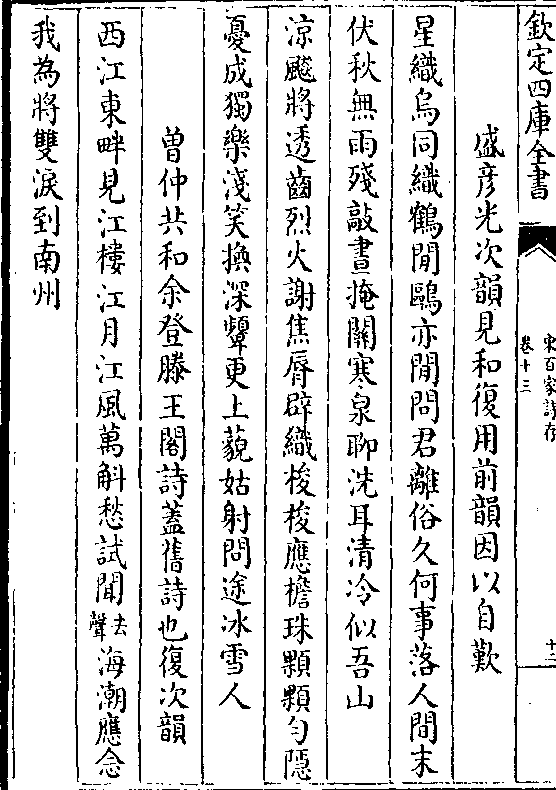 欽定四庫全書
宋百家詩存
卷十三
十二
盛彦光次韻見和復用前韻因以自歎
星織烏同織鶴閒鷗亦閒問君離俗久何事落人間末
伏秋無雨殘敲晝掩關寒泉聊洗耳清冷似吾山
涼飈將透齒烈火謝焦脣辟織梭梭應檐珠顆顆勻隱
憂成獨樂淺笑換深顰更上藐姑射問途冰雪人
曾仲共和余登滕王閣詩蓋舊詩也復次韻
西江東畔見江樓江月江風萬斛愁試聞去聲海潮應念
我為將雙淚到南州